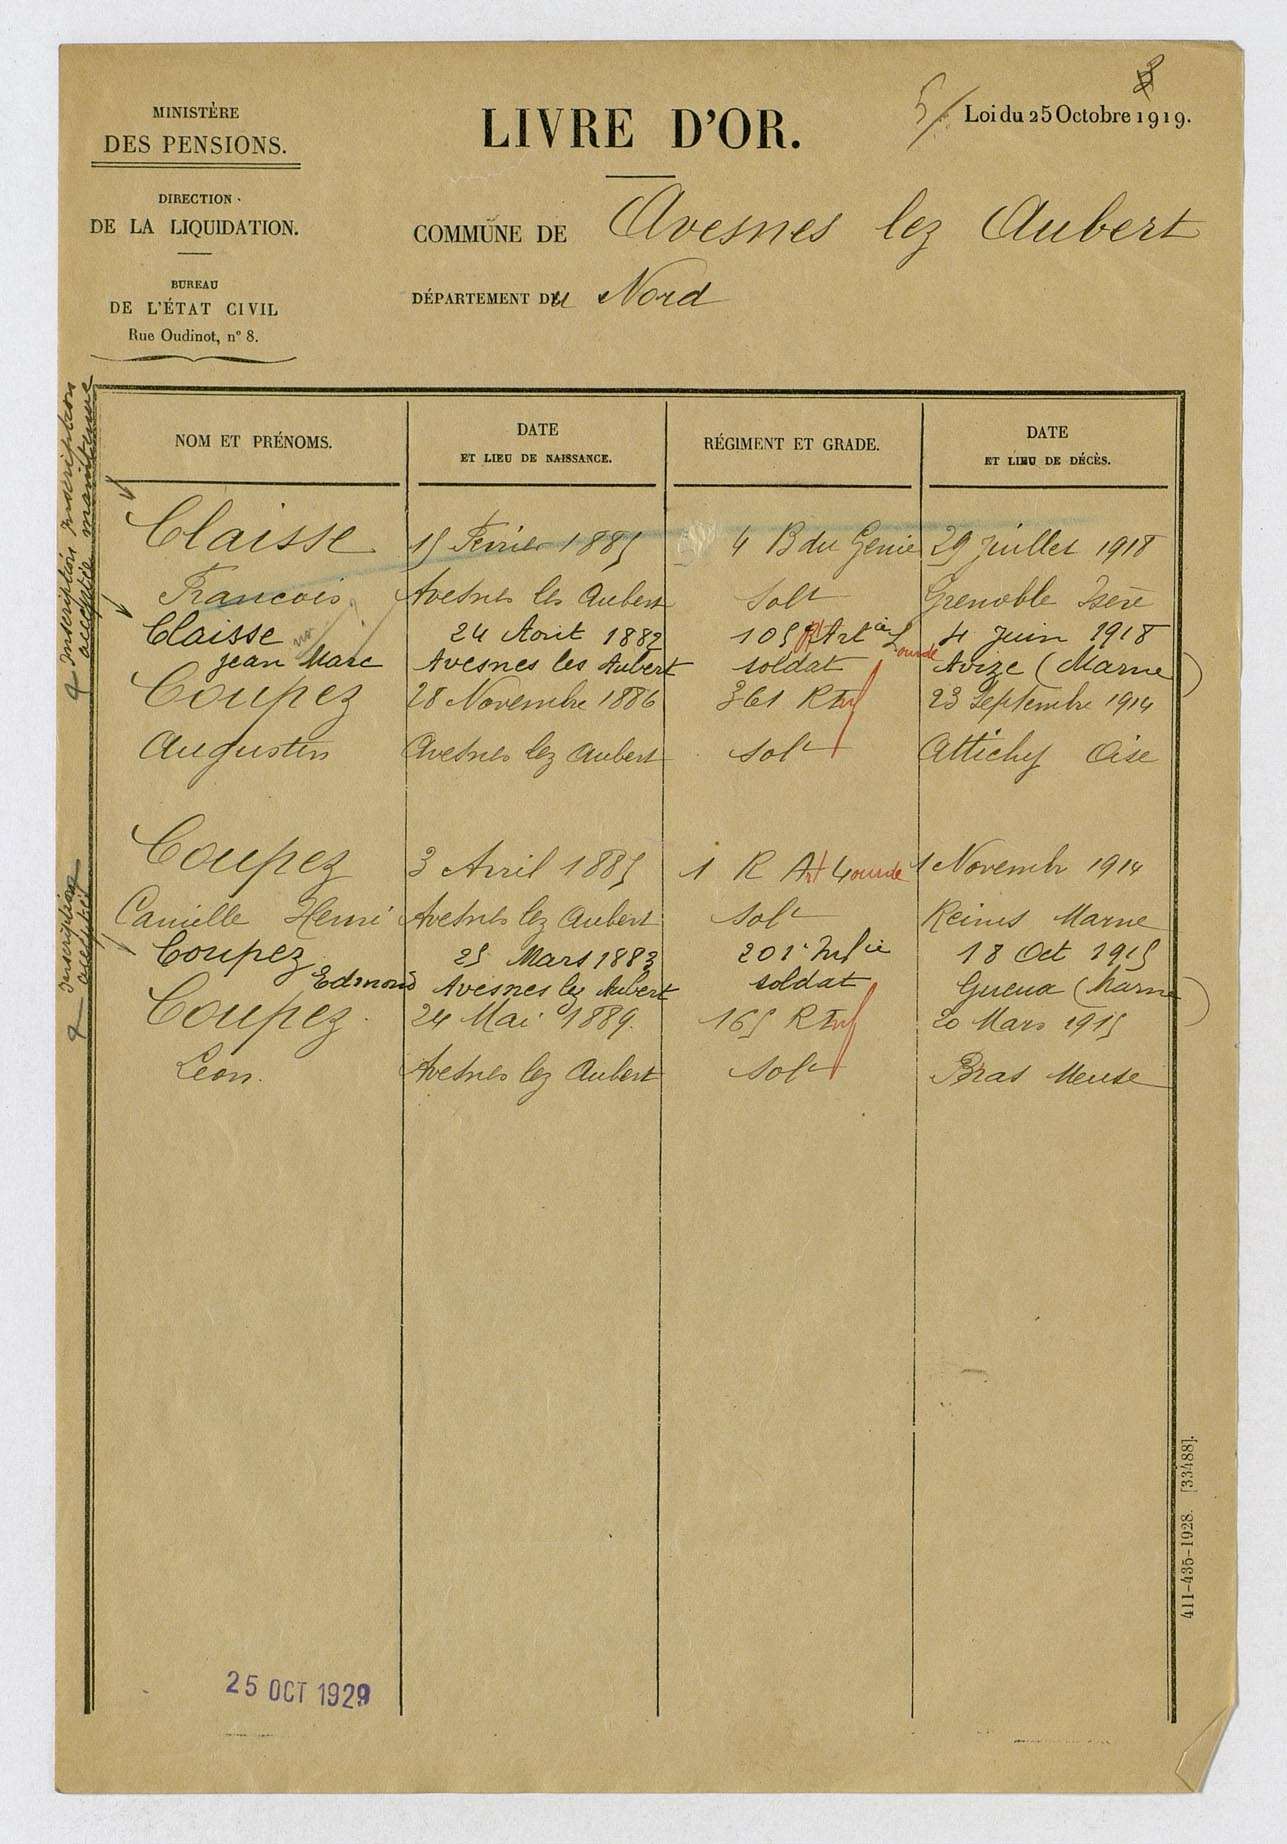 MINISTÈRE
DES PENSIONS.
DIRECTION
DE LA LIQUIDATION.
BUREAU
DE L'ÉTAT CIVIL
Rue Oudinot, n° 8.
LIVRE D'OR.
5/
Loi du 25 Octobre 1919.
COMMUNE DE Avesnes lez Aubert
DÉPARTEMENT Du Nord
NOM ET PRÉNOMS.
DATE
ET LIEU DE NAISSANCE.
RÉGIMENT ET GRADE.
DATE
ET LIEU DE DÉCÈS.
Claisse 15 Février 1885 4 B du Génie 29 Juillet 1918
Francois Avesnes les Aubert Solt Grenoble Isère
Claisse 24 Aout 1882 105 R Artie Lourde 4 Juin 1918
jean Marc Avesnes les Aubert soldat Avize (Marne)
Coupez 28 Novembre 1886 361 R Inf 23 Septembre 1914
Augustin Avesnes lez Aubert Solt Attichy Oise
Coupez 3 Avril 1885 1 R Art Lourde 1 Novembr 1914
Camille Henri Avesnes lez Aubert Solt Reims Marne
Coupez 25 Mars 1883 201e Infie 18 Oct 1915
Edmond Avesnes lez Aubert soldat Gueux (Marne)
Coupez 24 Mai 1889. 165 R Inf 20 Mars 1915
Leon. Avesnes lez Aubert Solt Bras Meuse
Inscription Inscription
acceptée
Inscription
acceptée
25 OCT 1929
411-435-1928. [33488].